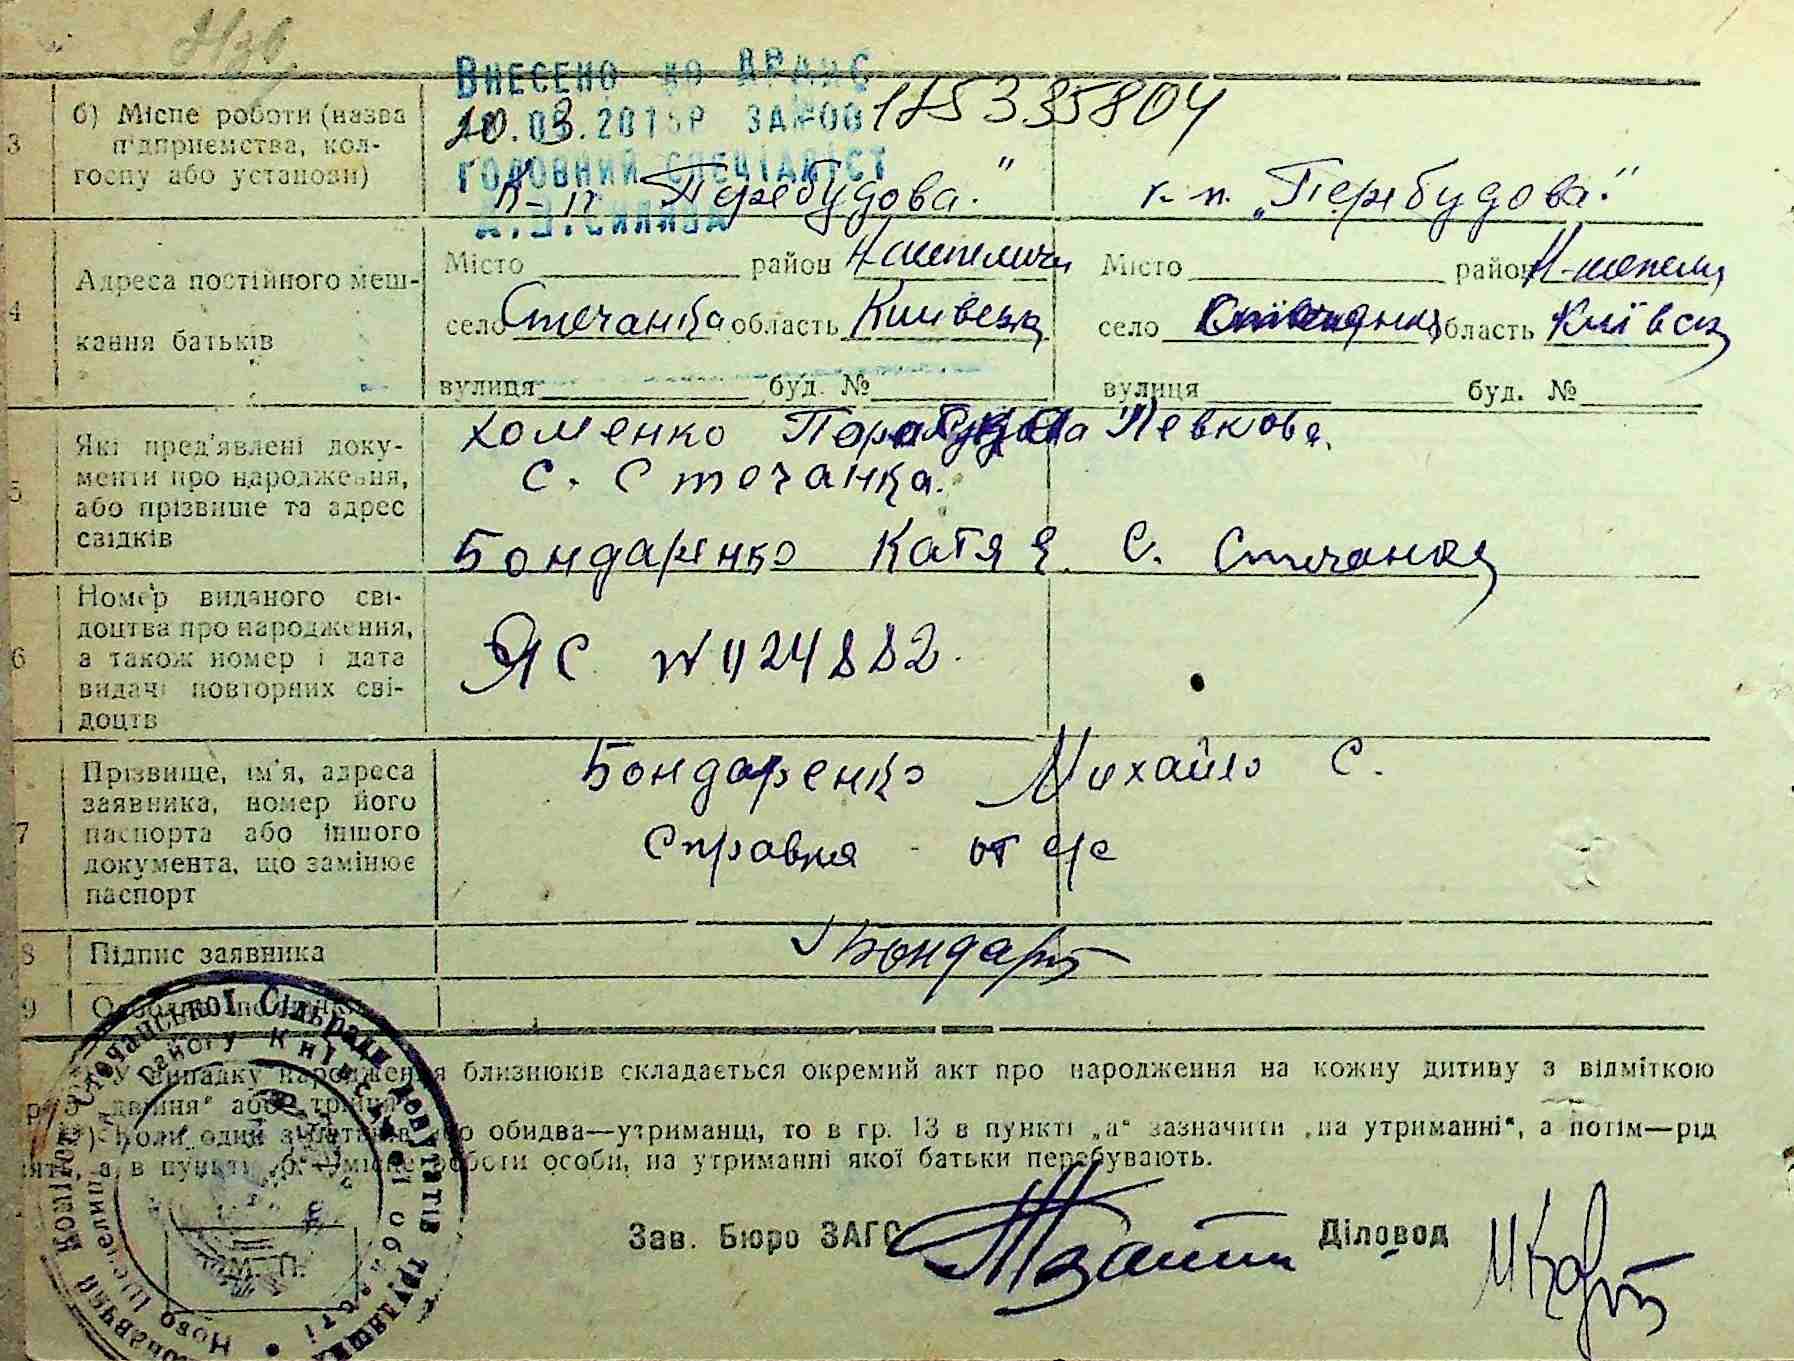 Внесено до ДРАЦС
20.03.2015р за №00 175335804
головний спеціаліст
3 б) Місце роботи (назва підприємства, колгоспу або установи)
К-п "Перебудова."
к. п. "Перебудова."
4 Адреса постійного мешкання батьків
Місто район Н шепеличи
село Стечанка область Київська
вулиця буд. №
Місто район Н-шепели
село область Київск
вулиця буд. №
5 Які пред'явлені документи про народження, або прізвище та адрес свідків
Хоменко Левкова.
с. Стечанка.
Бондаренко Катя с. Стечанка
6 Номер виданого свідоцтва про народження, а також номер і дата видачі повторних свідоцтв
ЯС №024882.
7 Прізвище, ім'я, адреса заявника, номер його паспорта або іншого документа, що замінює паспорт
Бондаренко Михайло С.
Справка от с/с
8 Підпис заявника
Бондар
9
У випадку народження близнюків складається окремий акт про народження на кожну дитину з відміткою
"двійня" або "трійня"
Коли один з батьків або обидва—утриманці, то в гр. 13 в пункті „а" зазначити „на утриманні", а потім—рід
а в пункті „б"—місце роботи особи, на утриманні якої батьки перебувають.
М. П.
Зав. Бюро ЗАГС
Діловод
Виконавчий Комітет Стечанської Сільради депутатів трудящих
Ново Шепелицького району Київської області